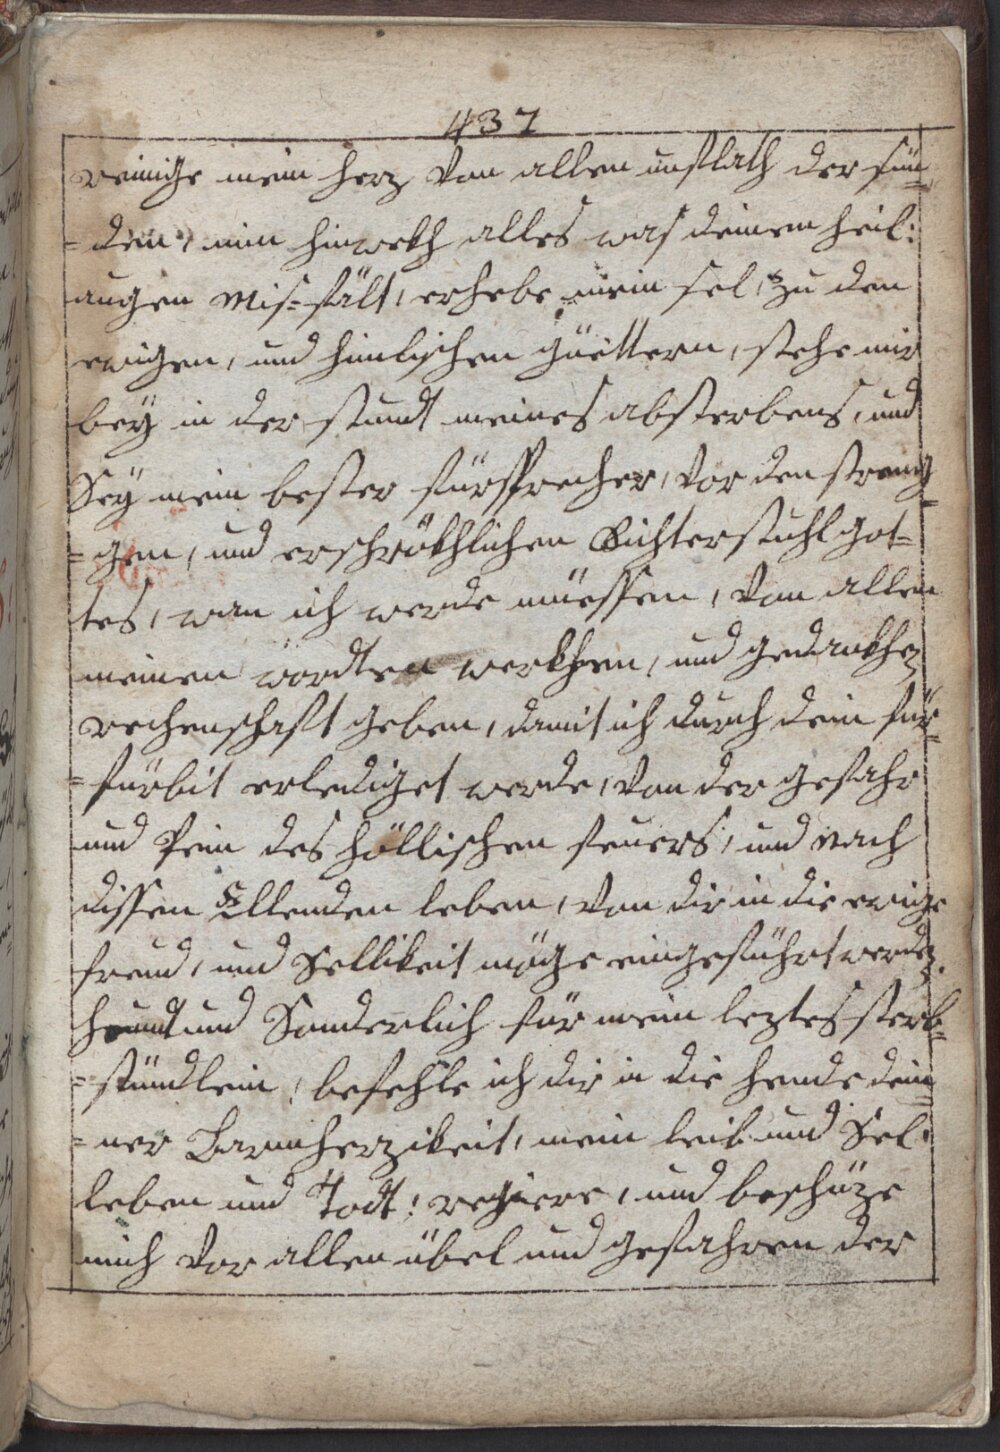 437
reinige mein herz von allen unflath der sün-
-den, nim hinwekh alles was deinen heil:
augen Mis-fält, erhebe mein sel, zu den
ewigen, und himlischen güettern, stehe mir
bey in der stundt meines absterbens, und
Sey mein bester fürsprecher, vor den streng-
-gen, und erschrökhlichen Richterstuhl got-
tes, wan ich werde müessen, von allen
meinen wordten werkhen, und gedankhen
rechenschaft geben, damit ich durch dein für-
-fürbit erlediget werde, von der gefahr
und Pein des höllischen feuers, und nach
dissen Ellenden leben, von dir in die ewige
freud, und Sellikeit möge eingeführt werden.
heundt und Sonderlich für mein leztes sterb-
-stündlein, befehle ich dir in die hende dein-
-ner Barmherzikeit, mein leib und Sel.
leben und Todt: regiere, und beschüze
mich vor allen übel und gefahren der